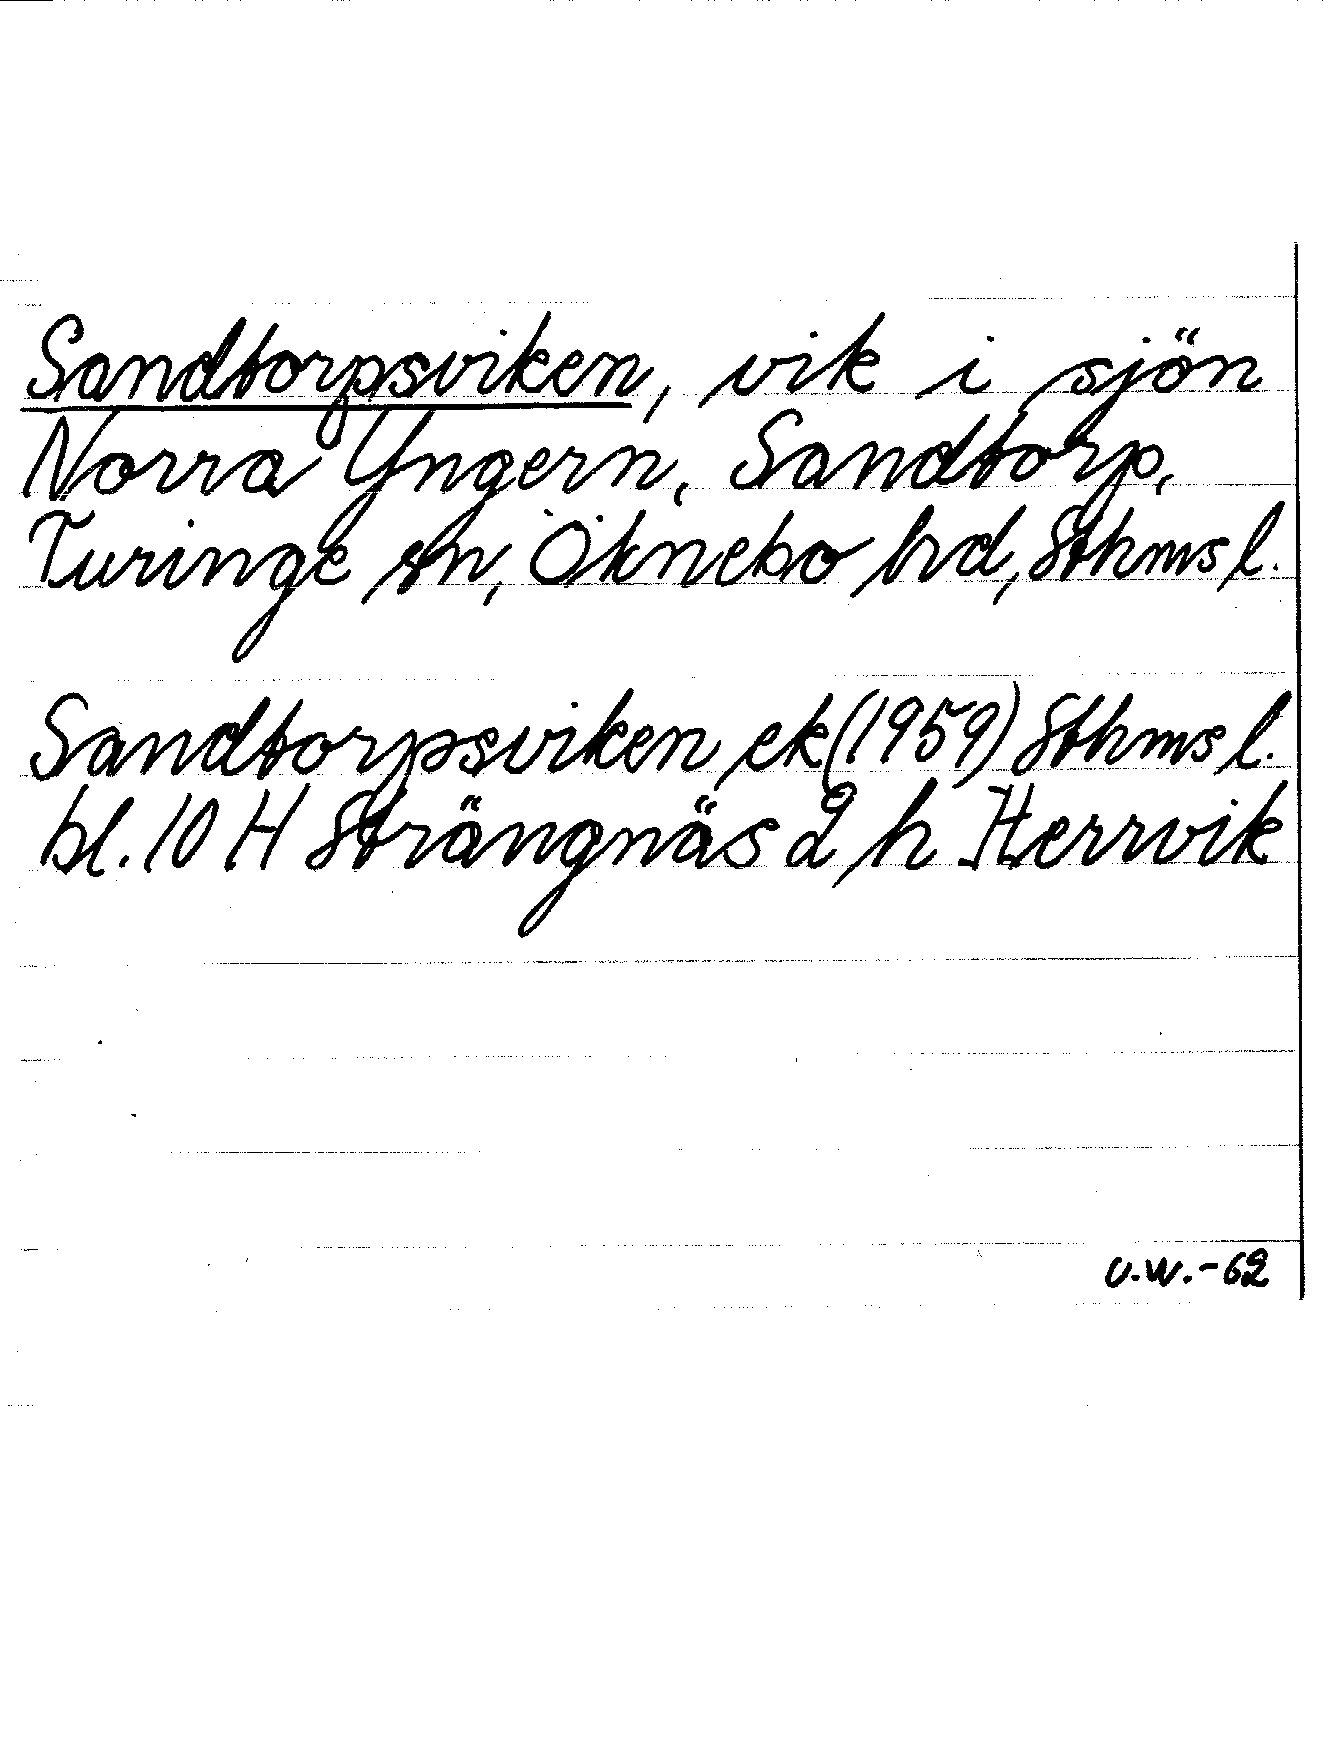 Sandtorpsviken, vik i sjön
Norra Yngern, Sandtorp,
Turinge sn, Öknebo hd, Sthms l.
Sandtorpsviken ek (1959) Sthms l.
bl. 10 H Strängnäs 2 h Herrvik
U.W.-62